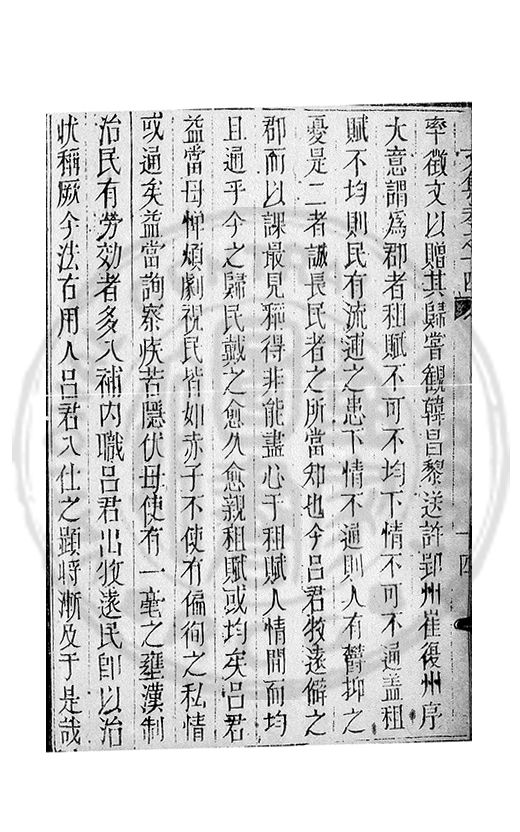 率徵文以贈其歸嘗觀韓昌黎送許郢州崔復州序
大意謂爲郡者租賦不可不均下情不可不通蓋租
賦不均則民有流逋之患下情不通則人有鬱抑之
憂是二者誠長民者之所當知也今呂君牧遠僻之
郡而以課最見稱得非能盡心于租賦人情間而均
且通乎今之歸民戴之愈久愈親租賦或均矣呂君
益當毋憚煩劇視民皆如赤子不使有偏徇之私情
或通矣益當詢察疾苦隱伏毋使有一毫之壅漢制
治民有勞効者多入補內職呂君出牧遠民卽以治
狀稱厥今法古用人呂君入仕之顯將漸及于是哉